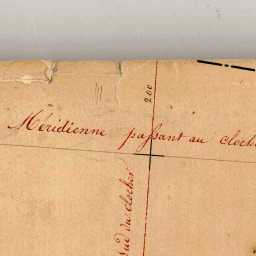 200
Méridienne passant au cloche
sud du clocher